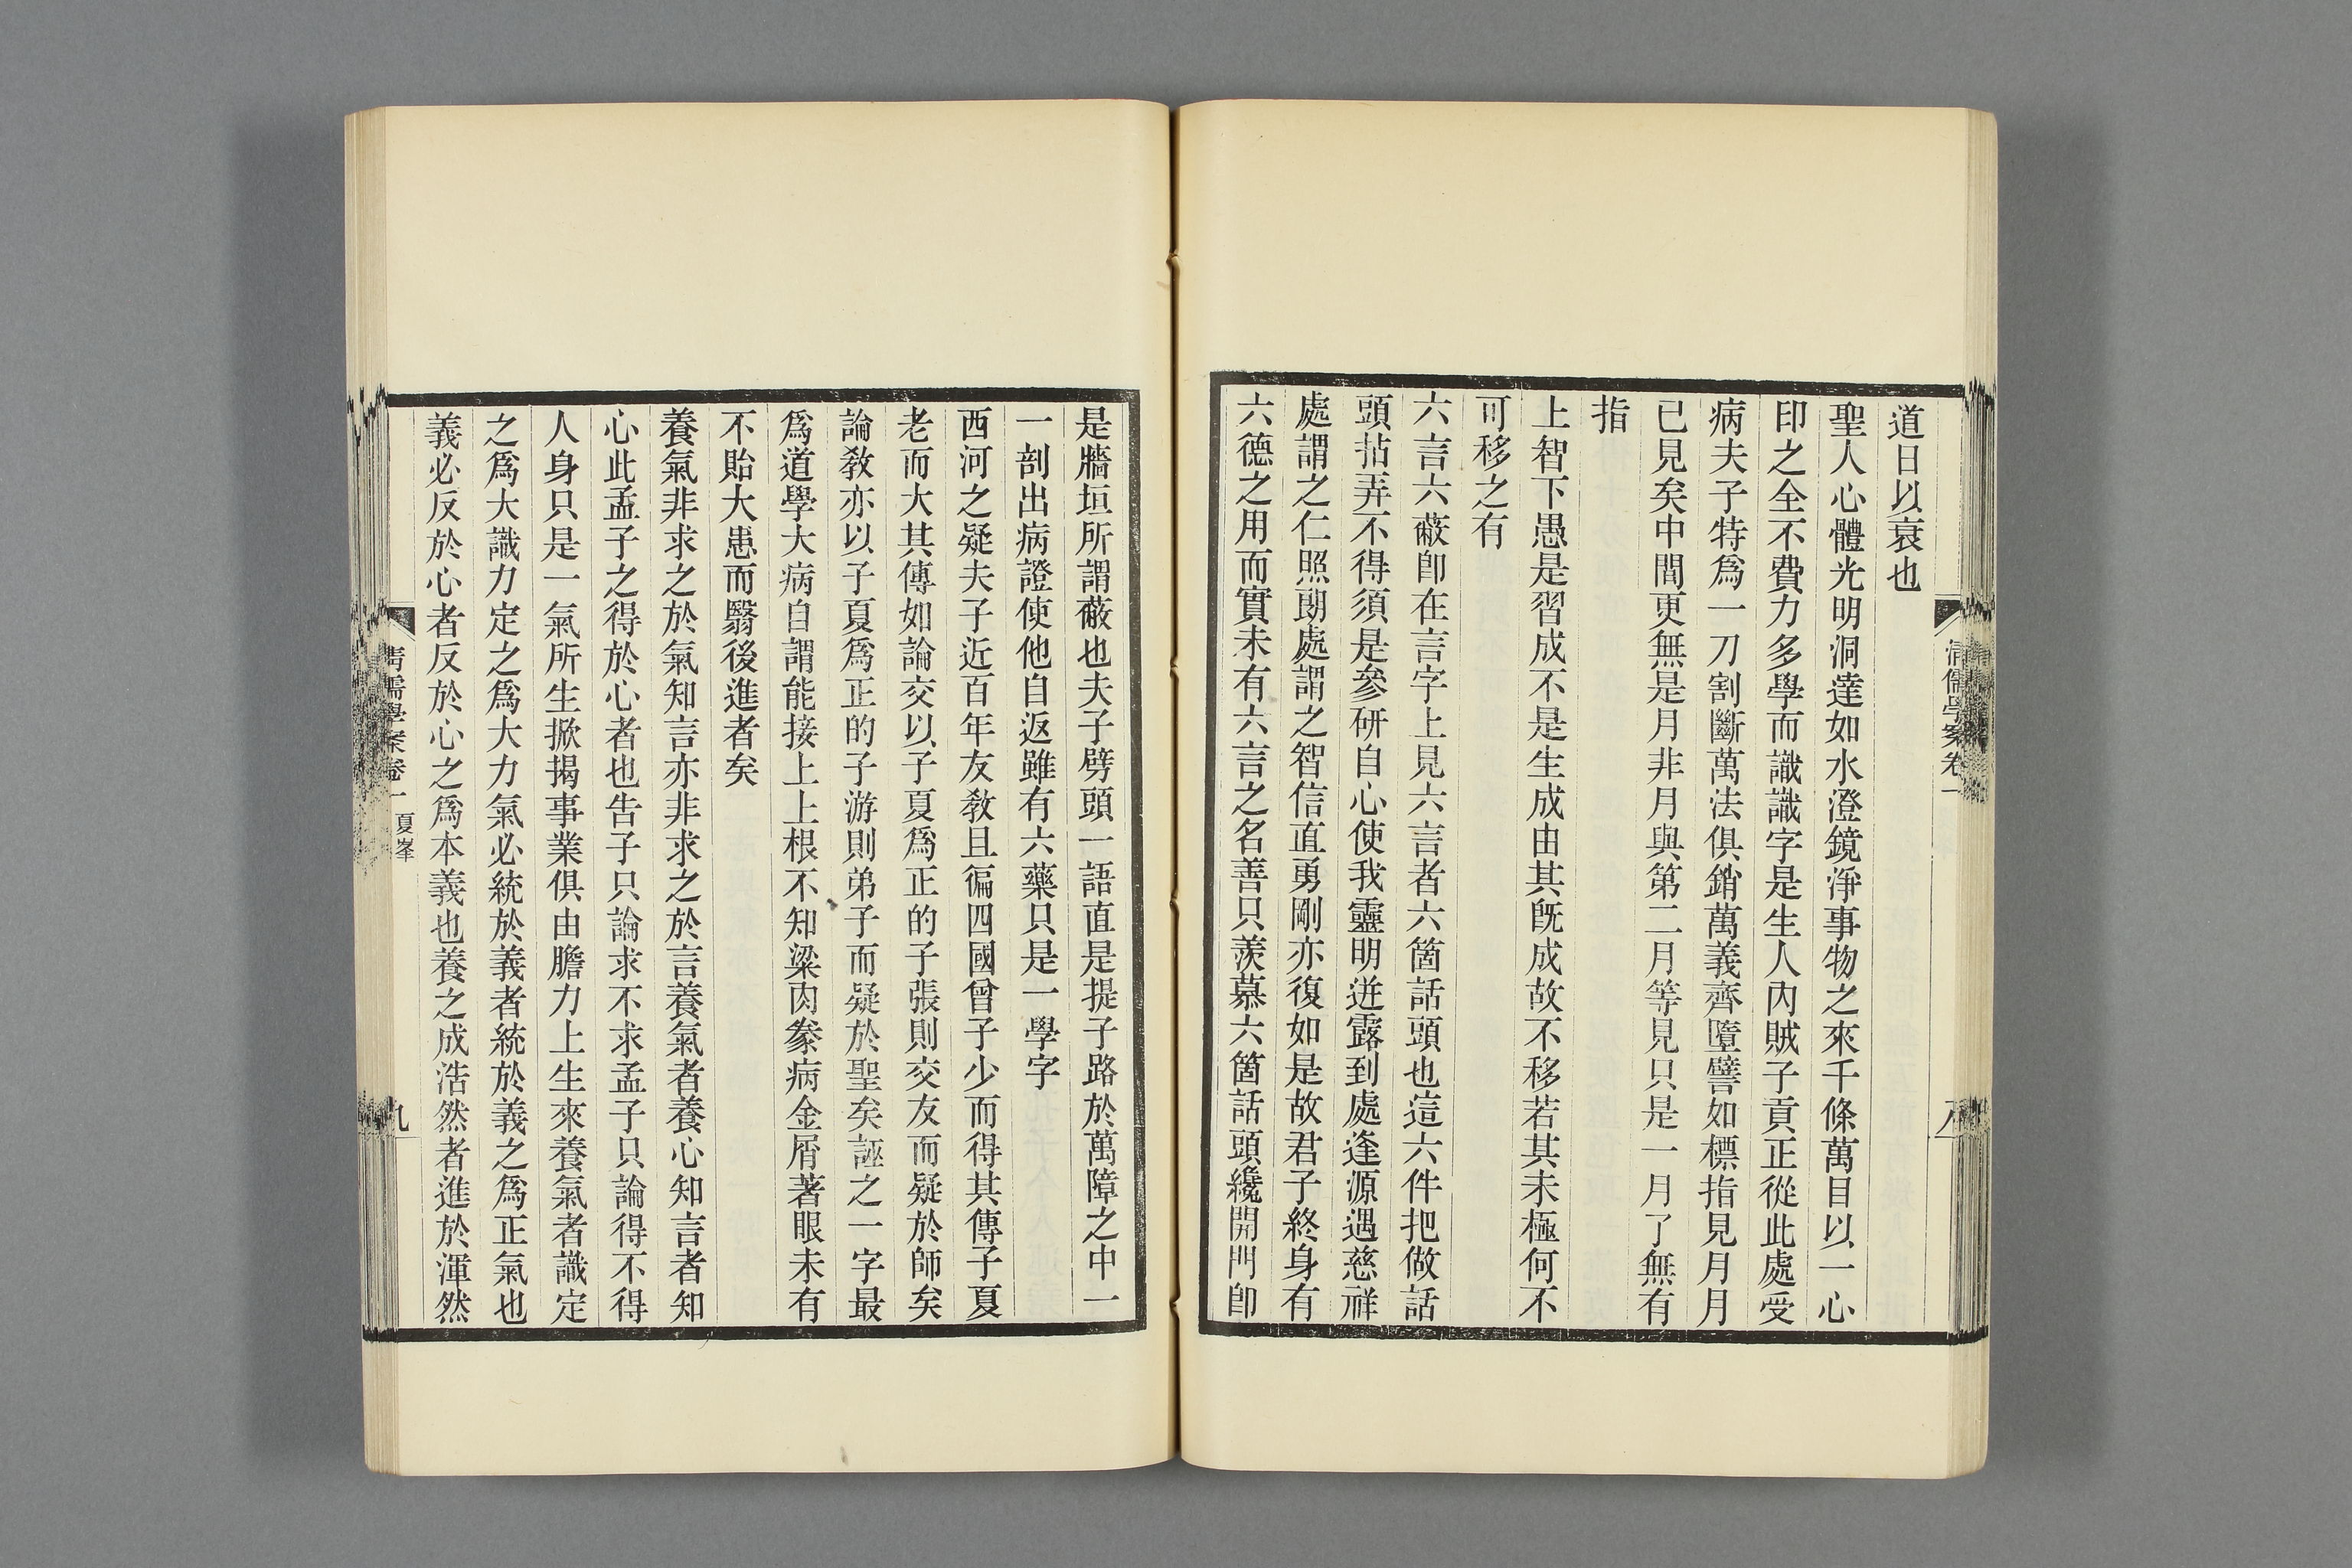 道日以衰也
聖人心體光明洞達如水澄鏡淨事物之來千條萬目以一心
印之全不費力多學而識識字是生人內賊子貢正從此處受
病夫子特爲一刀割斷萬法俱銷萬義齊墮譬如標指見月月
已見矣中間更無是月非月與第二月等見只是一月了無有
指
上智下愚是習成不是生成由其旣成故不移若其未極何不
可移之有
六言六蔽卽在言字上見六言者六箇話頭也這六件把做話
頭拈弄不得須是參研自心使我靈明迸露到處逢源遇慈祥
處謂之仁照朗處謂之智信直勇剛亦復如是故君子終身有
六德之用而實未有六言之名善只羨慕六箇話頭纔開門卽
清儒學案卷一
八
是牆垣所謂蔽也夫子劈頭一語直是提子路於萬障之中一
一剖出病證使他自返雖有六藥只是一學字
西河之疑夫子近百年友教且徧四國曾子少而得其傳子夏
老而大其傳如論交以子夏爲正的子張則交友而疑於師矣
論敎亦以子夏爲正的子游則弟子而疑於聖矣誣之一字最
爲道學大病自謂能接上上根不知粱肉豢病金屑著眼未有
不貽大患而翳後進者矣
養氣非求之於氣知言亦非求之於言養氣者養心知言者知
心此孟子之得於心者也告子只論求不求孟子只論得不得
人身只是一氣所生掀揭事業俱由膽力上生來養氣者識定
之爲大識力定之爲大力氣必統於義者統於義之爲正氣也
義必反於心者反於心之爲本義也養之成浩然者進於渾然
清儒學案卷一 夏峯
九